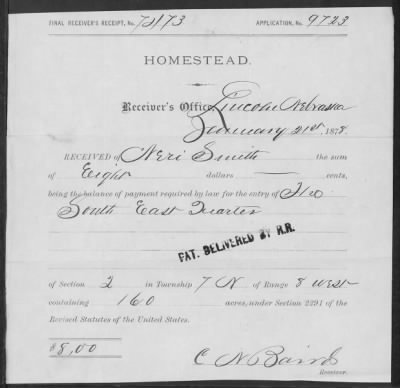 FINAL RECEIVER'S RECEIPT, No. APPLICATION, No. 9723
HOMESTEAD.
Receiver's Office, Lincoln Nebraska
January 21st, 1878.
RECEIVED of Neri Smith the sum
of Eight dollars — cents,
being the balance of payment required by law for the entry of The
South East Quarter
PAT. DELIVERED BY R.R.
of Section 2 in Township 7 N of Range 8 West
containing 160 acres, under Section 2291 of the
Revised Statutes of the United States.
$8,00
C N Baird
Receiver.